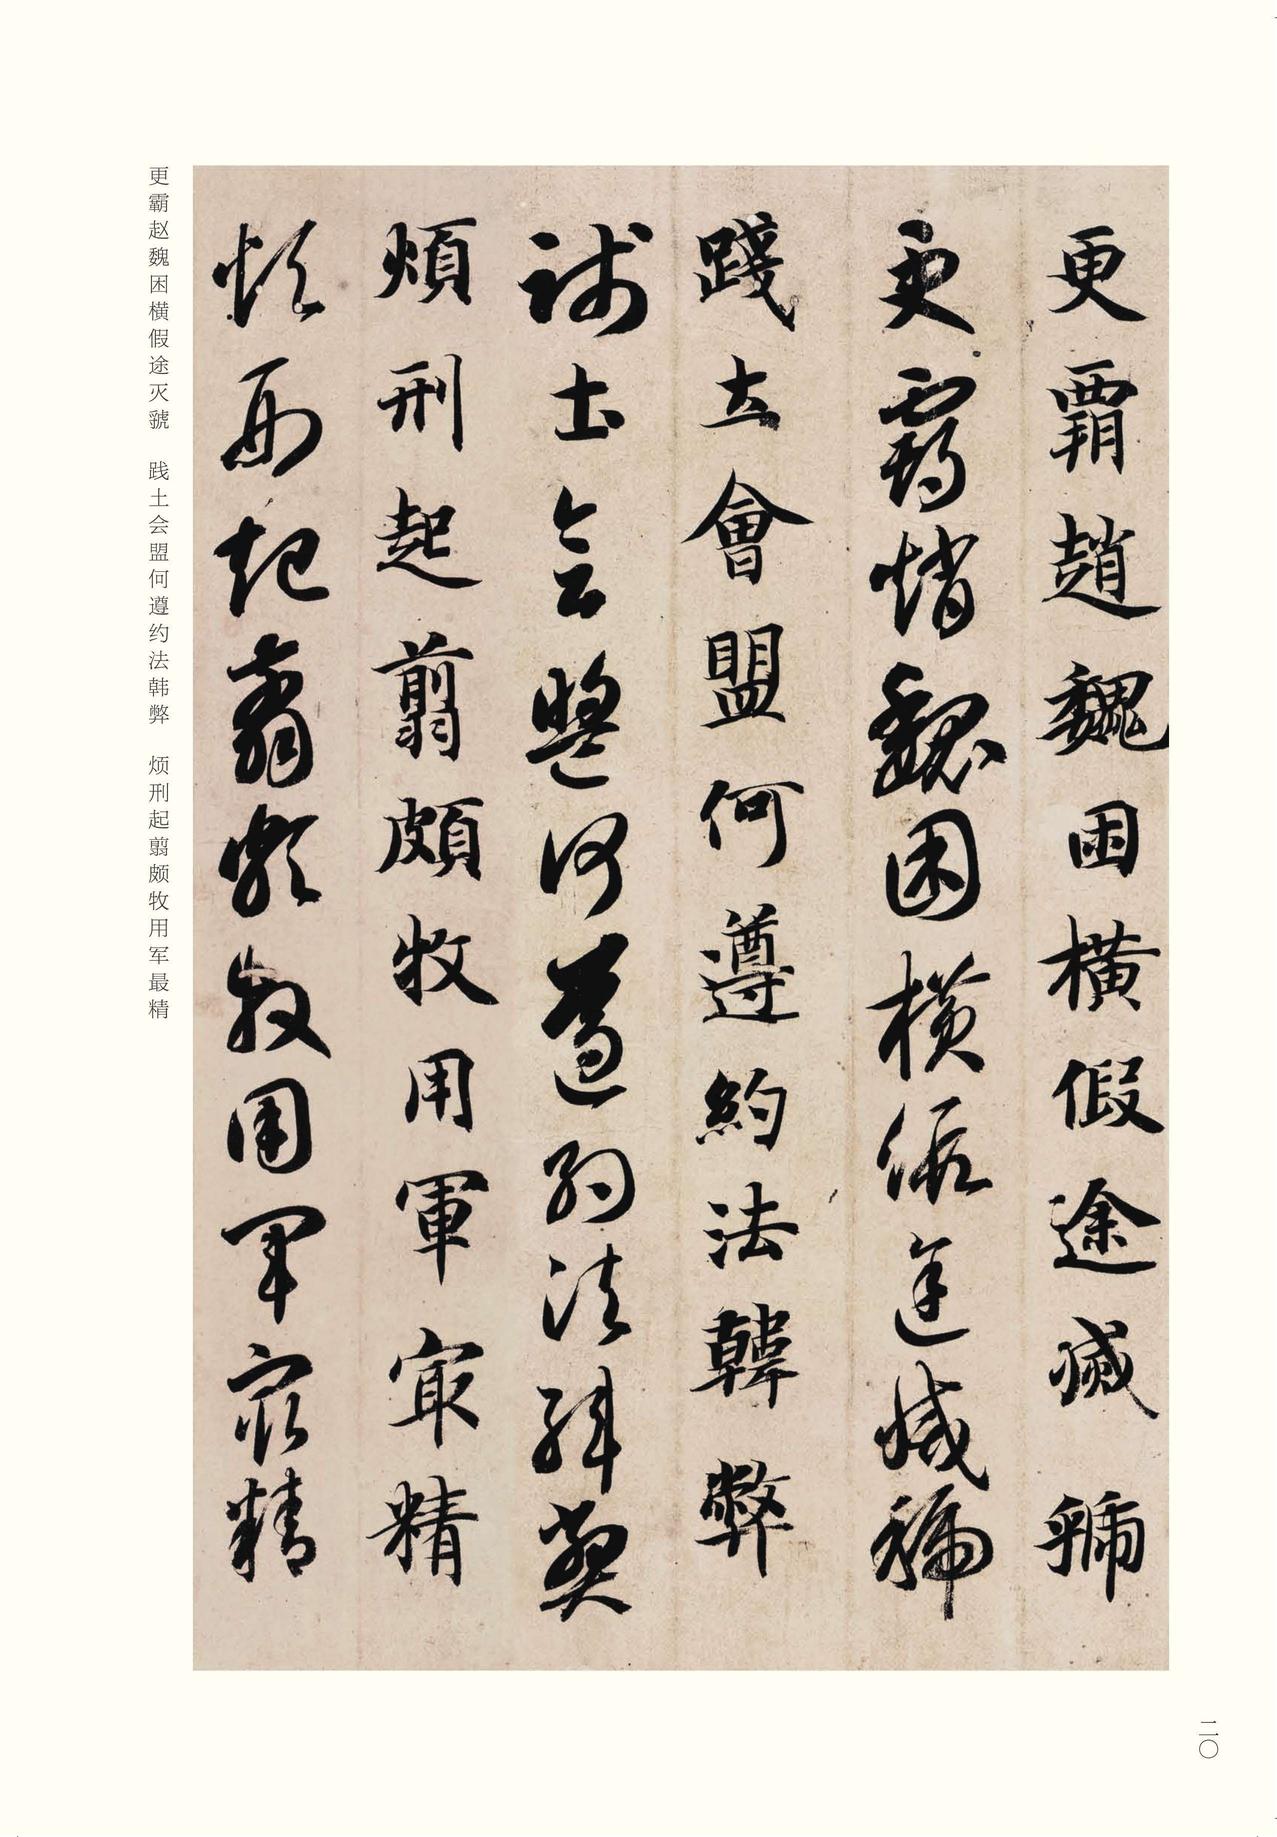 更霸趙魏困橫假途滅虢
更霸趙魏困橫假途滅虢
踐土會盟何遵約法韓弊
踐土會盟何遵約法韓弊
煩刑起翦頗牧用軍冣精
煩刑起翦頗牧用軍冣精
更霸赵魏困横假途灭虢 践土会盟何遵约法韩弊 烦刑起翦颇牧用军最精
二〇